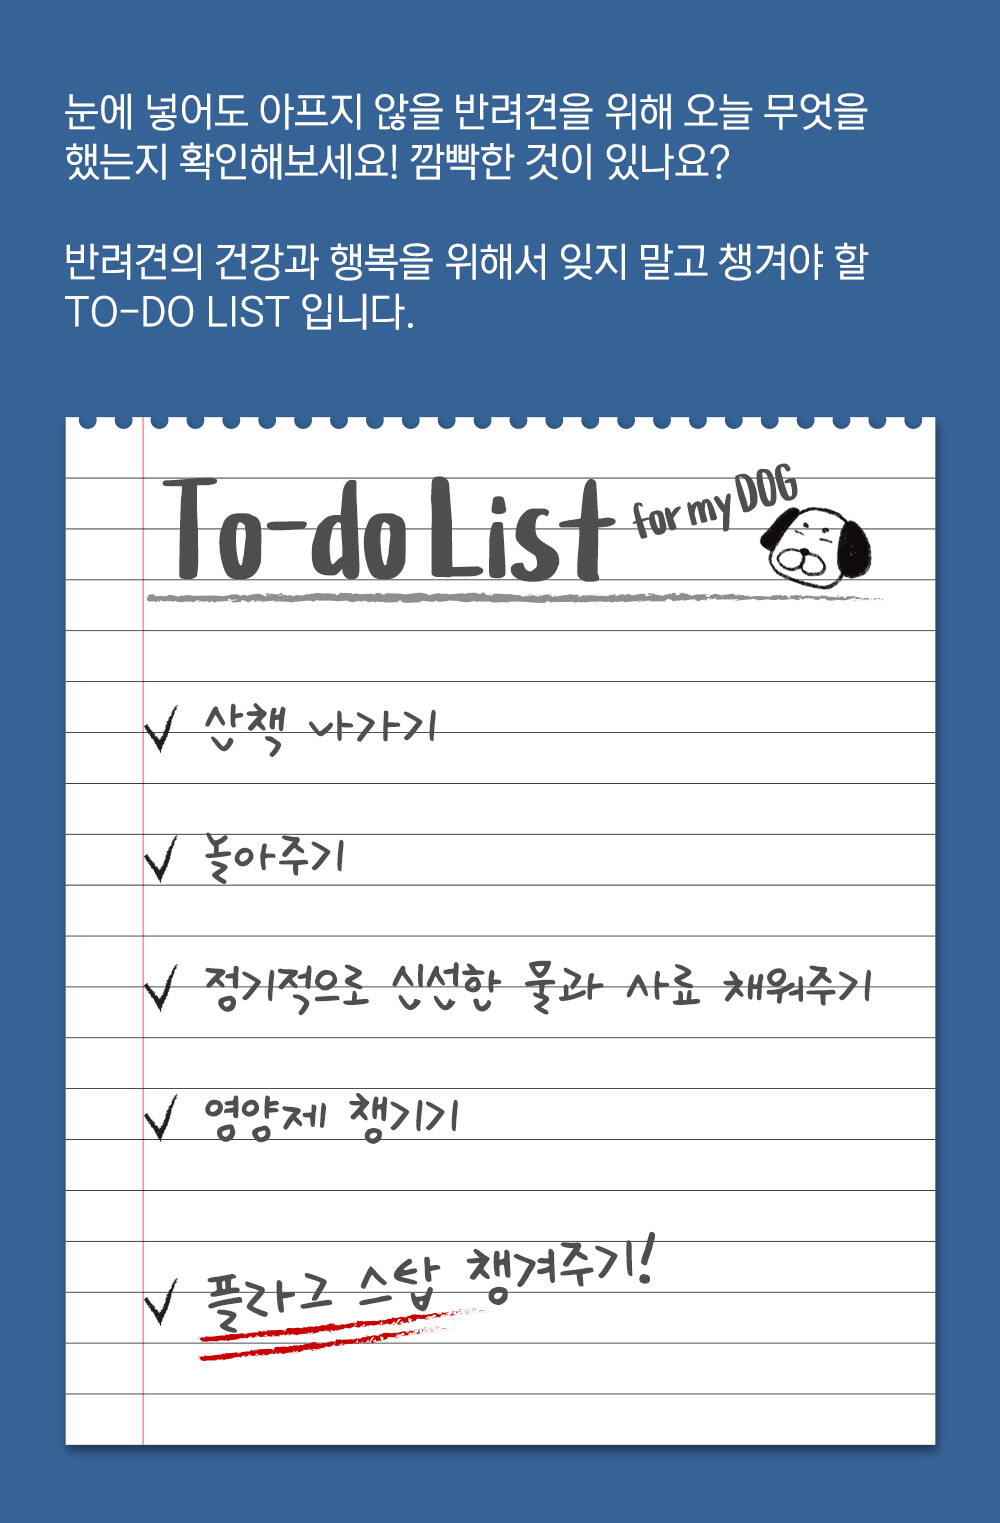 눈에 넣어도 아프지 않을 반려견을 위해 오늘 무엇을
했는지 확인해보세요! 깜빡한 것이 있나요?
반려견의 건강과 행복을 위해서 잊지 말고 챙겨야 할
TO-DO LIST 입니다.
To-do List for my DOG
산책 나가기
놀아주기
정기적으로 신선한 물과 사료 채워주기
영양제 챙기기
플라그 스탑 챙겨주기!